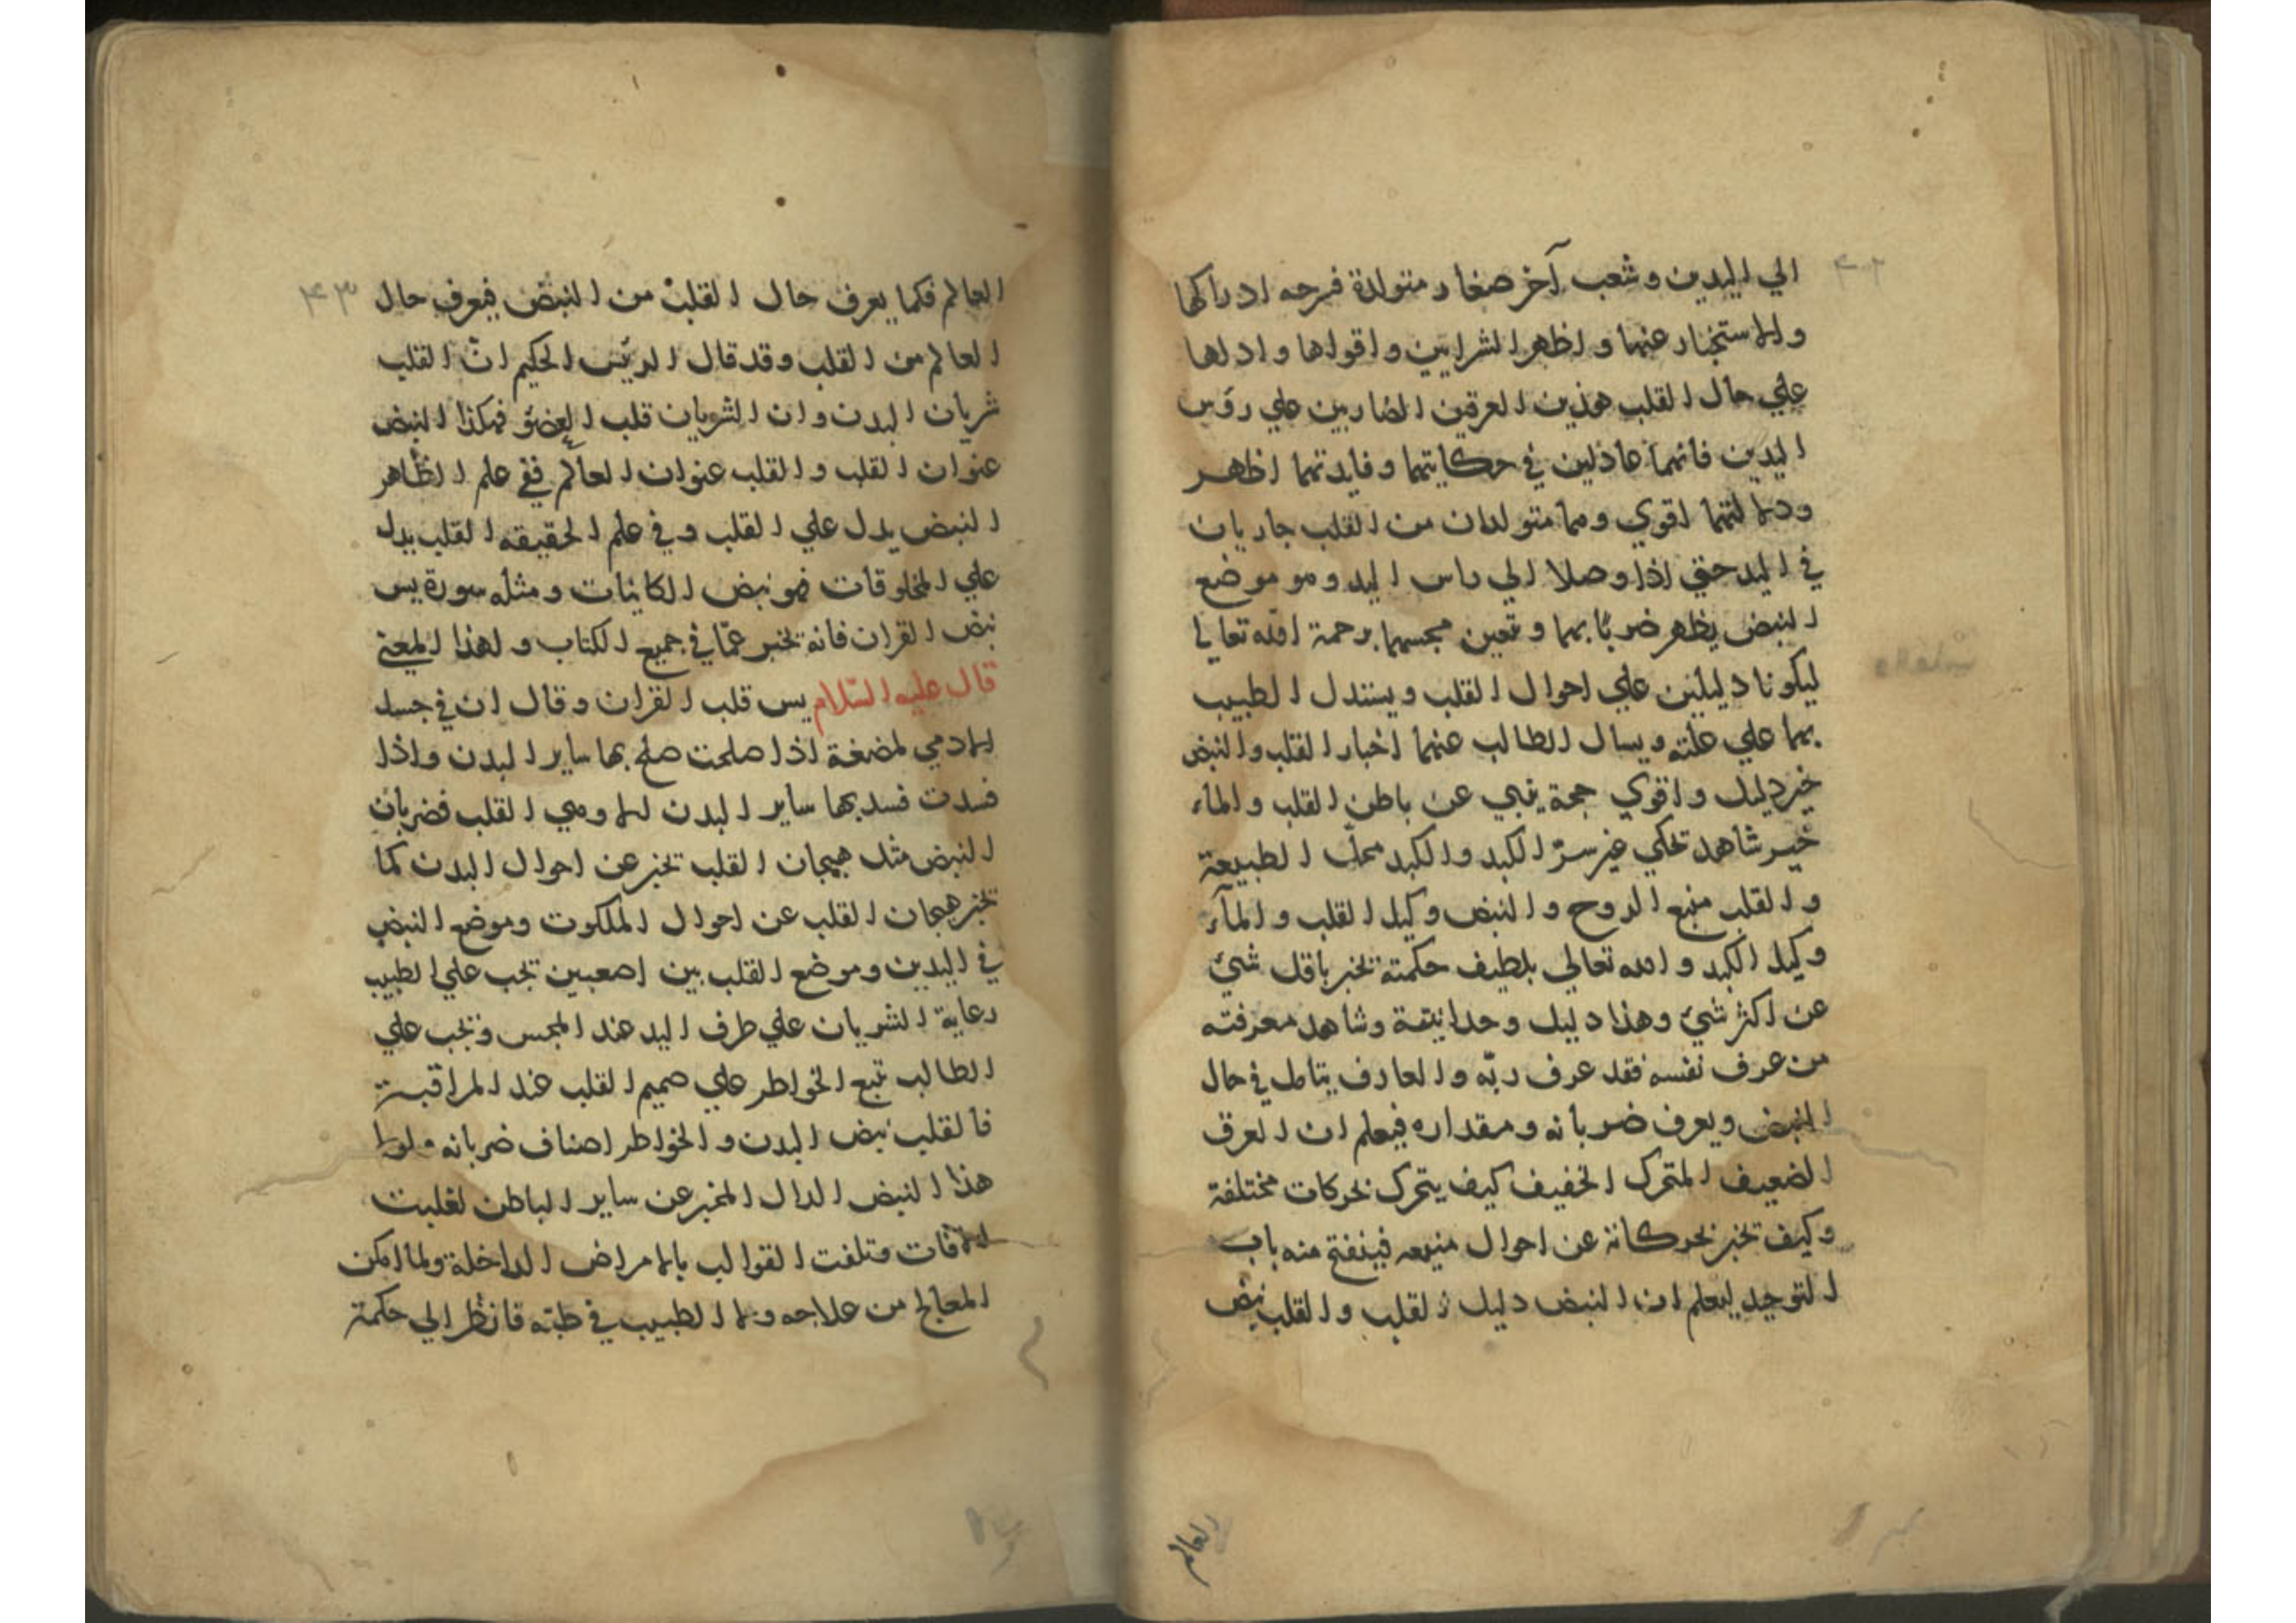 الي اليدين وشعب آخر صغار متولدة فرحه ادراكها
والاستخبار عنها واظهر الشرايين واقواها وادلها
علي حال القلب هذين العرقين الضاربين علي رؤس
اليدين فانهما عاذلين في حكايتهما وفايدتهما اظهر
ودلالتهما اقوي وهما متولدان من القلب جاريان
في اليد حتي اذا وصلا الي راس اليد وهو موضع
النبض يظهر ضربا بهما وتعين مجسهما برحمة الله تعالي
ليكونا دليلين علي احوال القلب ويستدل الطبيب
بهما علي علته ويسال الطالب عنهما اخبار القلب والنبض
خير دليل واقوي حجة ينبي عن باطن القلب والماء
خير شاهد تحكي عن سرّ الكبد والكبد محلّ الطبيعة
والقلب منبع الروح والنبض وكيل القلب والمآء
وكيل الكبد والله تعالي بلطيف حكمته تخبر باقل شيء
عن اكثر شيء وهذا دليل وحدانيته وشاهد معرفته
من عرف نفسه فقد عرف ربّه والعارف يتامل في حال
النبض ويعرف ضربانه ومقداره فيعلم ان العرق
الضعيف المتحرك الخفيف كيف يتحرك بحركات مختلفة
وكيف تخبر بحركاته عن احوال منبعه فينفتح منه باب
التوحيد ليعلم ان النبض دليل القلب والقلب نبض
العالم
٤٢
العالم فكما يعرف حال القلب من النبض فيعرف حال
العالم من القلب وقد قال الرئيس الحكيم انّ القلب
شريان البدن وان الشريان قلب العضو فهكذا النبض
عنوان القلب والقلب عنوان العالم ففي علم الظاهر
النبض يدل علي القلب وفي علم الحقيقه القلب يدل
علي المخلوقات فهو نبض الكاينات ومثله سورة يس
نبض القران فانه تخبر عمّا في جميع الكتاب ولهذا المعني
قال عليه السّلام يس قلب القران وقال ان في جسد
الادمي لمضغة اذا صلحت صلح بها ساير البدن واذا
فسدت فسد بها ساير البدن الا وهي القلب فضربان
النبض مثل هيجان القلب تخبر عن احوال البدن كما
تخبر هيجان القلب عن احوال الملكوت وموضع النبض
في اليدين وموضع القلب بين اصعبين تجب علي الطبيب
رعاية الشريان علي طرف اليد عند المجس وتجب علي
الطالب تتبع الخواطر علي صميم القلب عند المراقبة
فالقلب نبض البدن والخواطر اصناف ضربانه ولولا
هذا النبض الدال المخبر عن ساير الباطن لغلبت
الآفات وتلفت القوالب بالامراض الداخلة ولما امكن
المعالج من علاجه ولا الطبيب في طبّه فانظر الي حكمة
٤٣